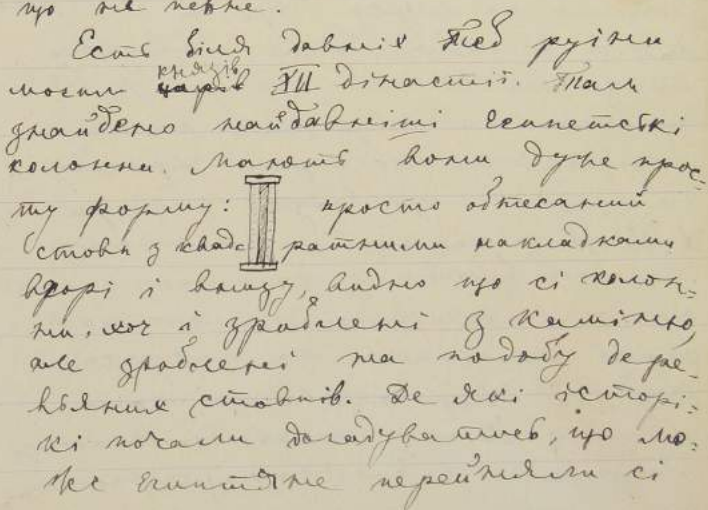 що не певне.
Есть біля давніх Теб руїни
могил князів царів XII дінастії. Там
знайдено найдавніші Египетські
колонни. Мають вони дуже прос-
ту форму: просто обтесаний
стовп з квад- ратними накладками
вгорі і внизу, видно що сі колон-
ни, хоч і зроблені з каміню,
але зроблені на подобу дере-
вьяних стовпів. Де які історі-
кі почали догадуватись, що мо-
же Египтяне перейняли сі